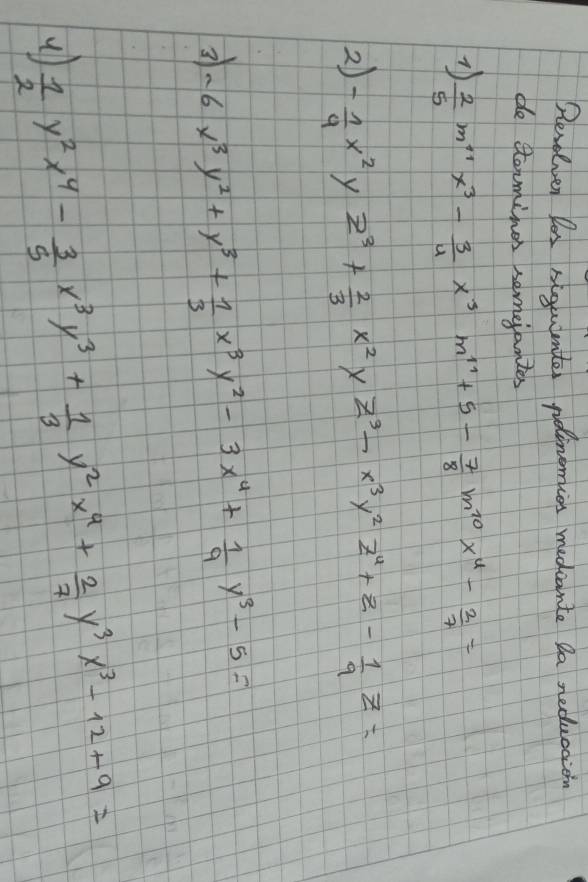 Resolver los siguientes polinomios mediante la reducción
de terminos semejantes
1) 2/5 m¹¹ x³ - 3/4 x³ m¹¹ + 5 - 7/8 m¹⁰ x⁴ - 2/7 =
2) - 1/9 x² y z³ + 2/3 x² y z³ - x³ y² z⁴ + z - 1/9 z =
3) - 6 x³ y² + y³ + 1/3 x³ y² - 3x⁴ + 1/9 y³ - 5 =
4) 1/2 y² x⁴ - 3/5 x³ y³ + 1/3 y² x⁴ + 2/7 y³ x³ - 12 + 9 =